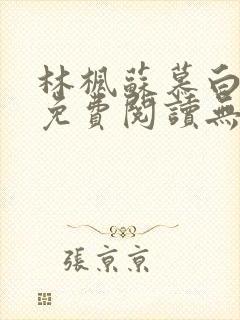 林楓蘇慕白
免費閱讀無
張京京